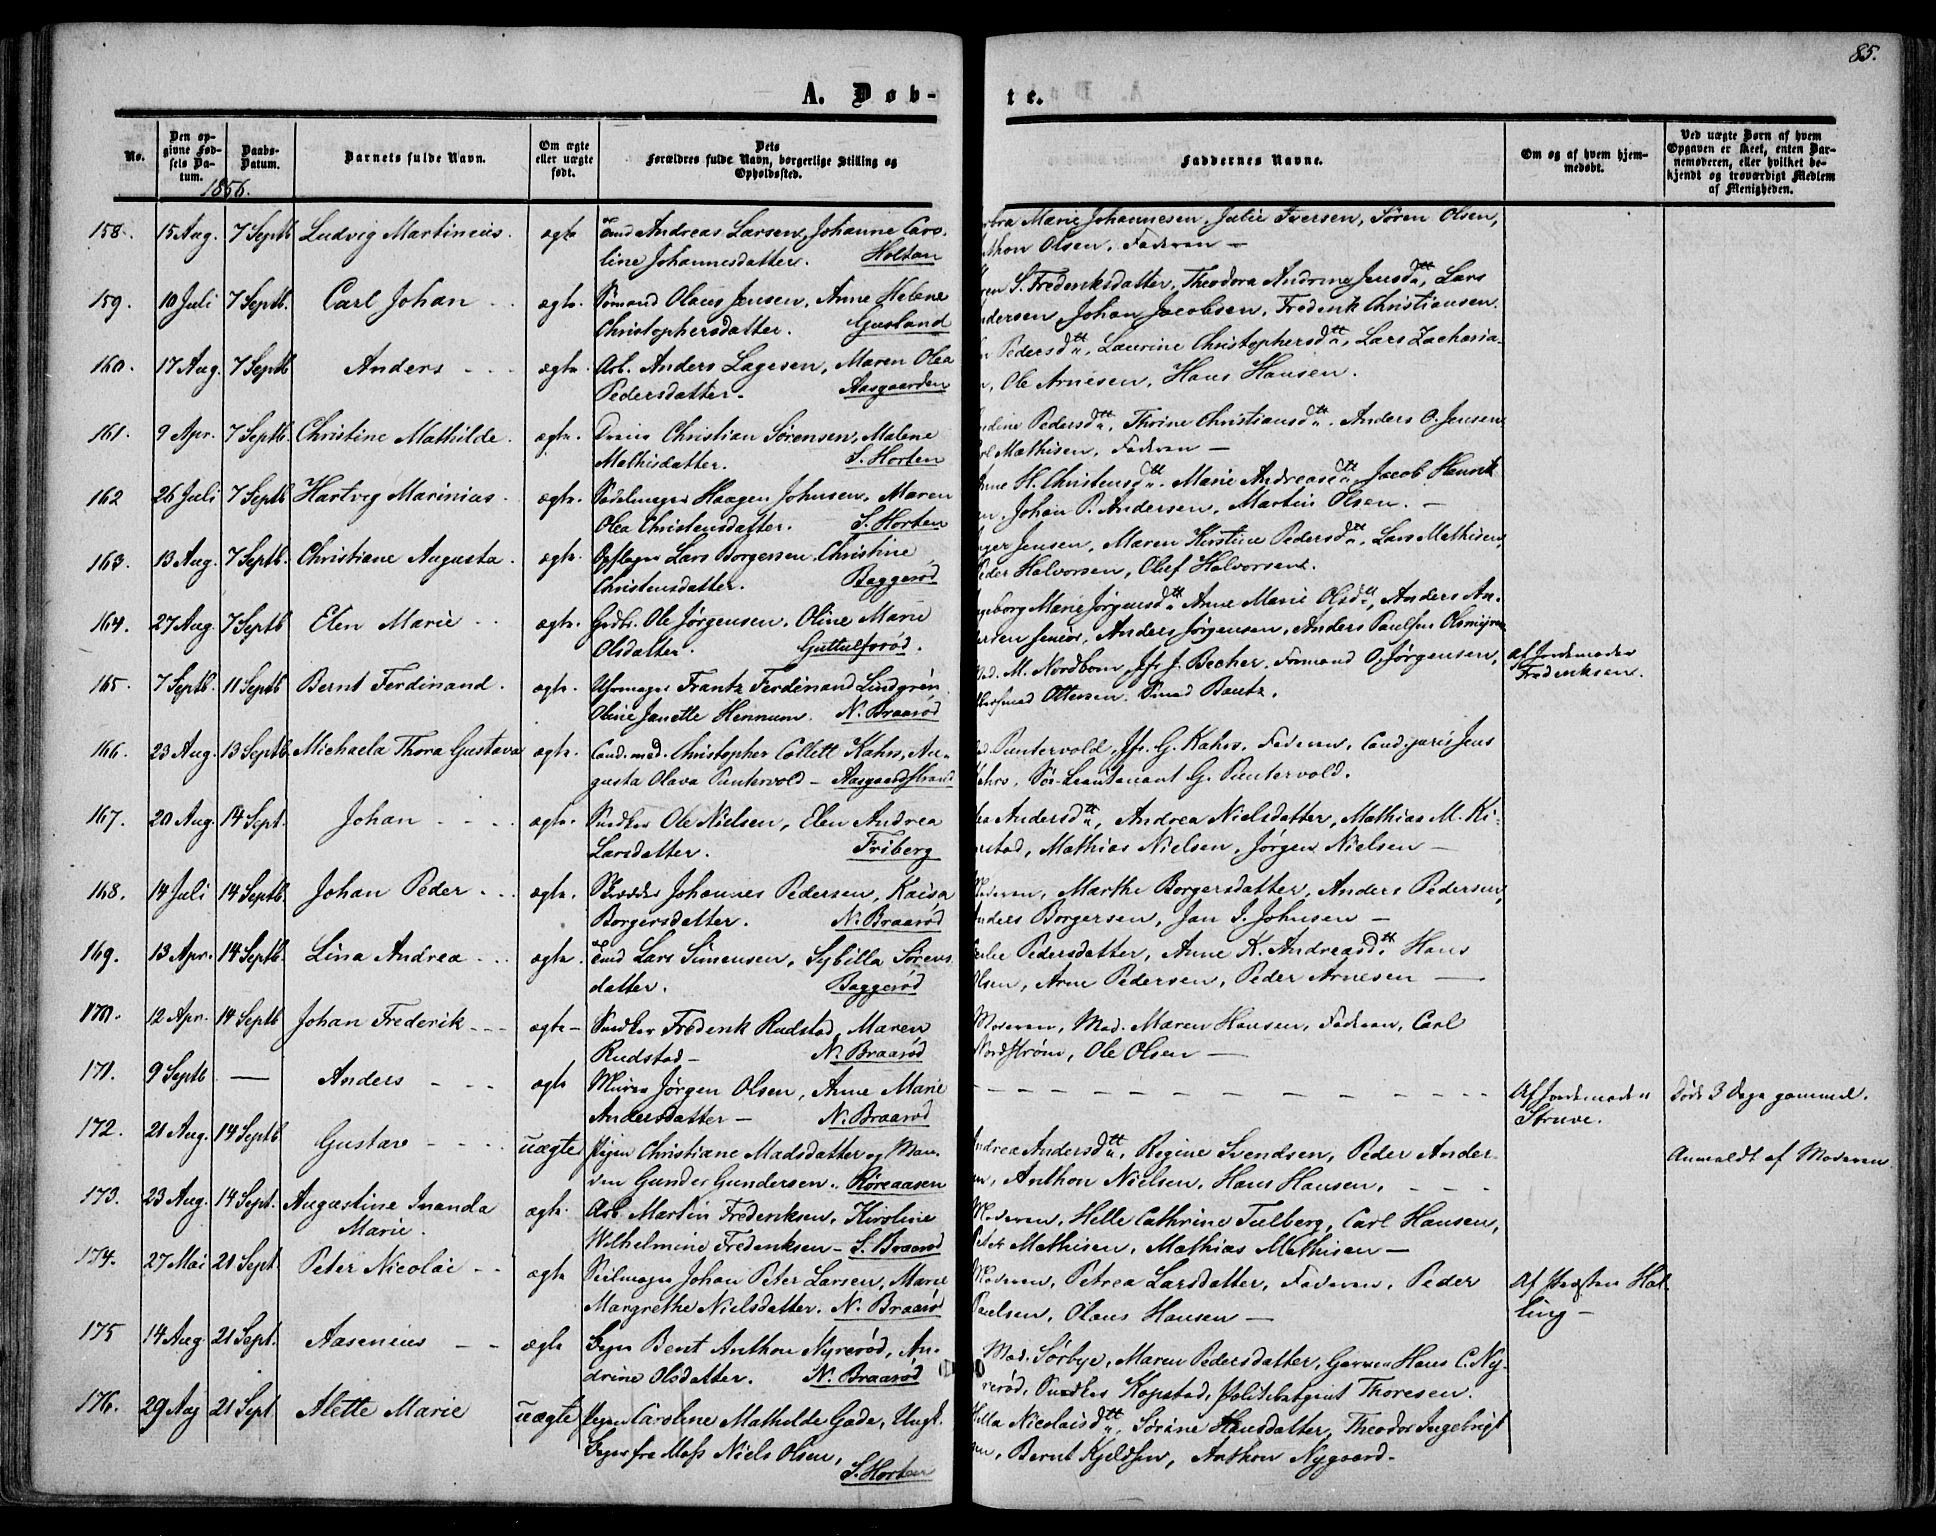 85.
A. Døb-
te.
No.
Den op-
givne Fød-
sels Da-
tum.
Daabs-
Datum.
Barnets fulde Navn.
Om ægte
eller uægte
født.
Dets
Forældres fulde Navn, borgerlige Stilling og
Opholdssted.
Faddernes Navne.
Om og af hvem hjem-
medøbt.
Ved uægte Børn af hvem
Opgaven er skeet, enten Bar-
nemoderen, eller hvilket be-
kjendt og troværdigt Medlem
af Menigheden.
1856.
158. 15 Aug. 7 Septb Ludvig Martinius. ægte Andreas Larsen, Johanne Caro-
line Johannesdatter. Holtan
Marie Johannesen, Julie Iversen, Søren Olsen,
Olsen, Faderen —
159. 10 Juli 7 Septb. Carl Johan ægte. Sømand Olaus Jensen, Anne Helene
Christophersdatter. Gusland
S. Frederiksdatter, Theodora Andrine Jensdtt, Lars
Johan Jacobsen, Frederik Christiansen.
160. 17 Aug. 7 Septb Anders ægte. Arb. Anders Lagesen, Maren Olea
Pedersdatter. Aasgaarden
Pedersdtt, Laurine Christophersdtt, Lars Zacharia-
Ole Arnesen, Hans Hansen.
161. 9 Apr. 7 Septb. Christine Mathilde. ægte. Christian Sørensen, Malene
Mathisdatter. S. Horten
Pedersdtt, Thrine Christiansdtt. Anders O. Jensen,
Mathisen, Faderen —
162 26 Juli 7 Septb Hartvig Marinius. ægte. Sadelmager Haagen Johnsen, Maren
Olea Christensdatter. S. Horten
H. Christensdtt. Marie Andreasdtt, Jacob Henrik-
Johan P. Andersen, Martin Olsen. —
163. 13 Aug. 7 Septb. Christiane Augusta. ægte. Lars Borgersen, Christine
Christensdatter. Baggerød
Jensen, Maren Kirstine Pedersdtt, Lars Mathisen,
Halvorsen, Oluf Halvorsen.
164. 27 Aug. 7 Septb Elen Marie ægte. Gdbr. Ole Jørgensen, Oline Marie
Olsdatter. Guttulfsrød.
Marie Jørgensdtt Anne Marie Olsdtt, Anders An-
senior, Anders Jørgensen, Anders Paulsen
165. 7 Septb. 11 Septb Bernt Ferdinand. ægte. Uhrmager Frantz Ferdinand Lindgren
Oline Janette Hennum. N. Braarød
M. Nordbom, Jfr. J. Becher. Formand O. Jørgensen,
Ottersen. Bautz.
af Jordemoder
Frederiksen.
166. 23 Aug. 13 Septb. Michaela Thora Gustava ægte. Cand. med. Christopher Collett Kahrs, Au-
gusta Olava Puntervold — Aasgaardstrand
Puntervold, Jfr. G. Kahrs, Faderen, Cand. juris Jens
Kahrs, Sø-Leutenant G. Puntervold.
167. 20 Aug. 14 Sept. Johan ægte. Snedker Ole Nielsen, Elen Andrea
Larsdatter. Friberg
Andersdtt, Andrea Nielsdatter, Mathias M. Ki-
Mathias Nielsen, Jørgen Nielsen —
168. 14 Juli 14 Septb. Johan Peder ægte. Skrædder Johannes Pedersen, Kaisa
Borgersdatter. N. Braarød
Moderen, Marthe Borgersdatter, Anders Pedersen,
Anders Borgersen, Jan J. Johnsen —
169. 13 Apr. 14 Septb. Lina Andrea ægte. Lars Simensen, Sybilla Sørens-
datter. Baggerød
Pedersdatter, Anne K. Andreasdtt. Hans
Olsen, Arne Pedersen, Peder Arnesen —
170. 12 Apr. 14 Septb Johan Frederik ægte Snedker Frederik Rudstad, Maren
Rudstad — N. Braarød
Moderen, Mad. Maren Hansen, Faderen, Carl
Nordstrøm, Ole Olsen —
171. 9 Septb — Anders ægte Murer Jørgen Olsen, Anne Marie
Andersdatter — N. Braarød
Af Jordemoder
Struve.
Døde 3 Dage gammel.
172. 21 Aug. 14 Septb Gustav uægte Pigen Christiane Madsdatter og
Gunder Gundersen. Røreaasen
Andrea Andersdtt, Regine Svendsen, Peder Ander-
Anthon Nielsen, Hans Hansen.
Anmeldt af Moderen.
173. 23 Aug. 14 Sept. Augustine Inanda
Marie. ægte. Arb. Martin Frederiksen, Karoline
Wilhelmine Frederiksen — S. Braarød
Moderen, Helle Cathrine Tulberg, Carl Hansen,
Mathisen, Mathias Mathisen —
174. 27 Mai 21 Sept Peter Nicolai ægte Seilmager Johan Peter Larsen, Marie
Margrethe Nielsdatter. N. Braarød
Moderen, Petrea Larsdatter, Faderen, Peder
Paulsen, Olaus Hansen —
Af Præsten Hal-
ling —
175 14 Aug. 21 Sept. Aasenius ægte Bent Anthon Nyrerød, An-
drine Olsdatter. N. Braarød
Mad. Sørbye, Maren Pedersdatter, Hans C. Ny-
rerød, Snedker Kopstad, Politibetjent Thoresen.
176. 29 Aug 21 Sept Alette Marie uægte Pigen Caroline Mathilde Gade, Ungk.
fra Moss Niels Olsen,
S. Horten
Nicolaisdtt, Sørine Hansdatter, Theodor Ingebrigt
Bernt Kjeldsen, Anthon Nygaard.